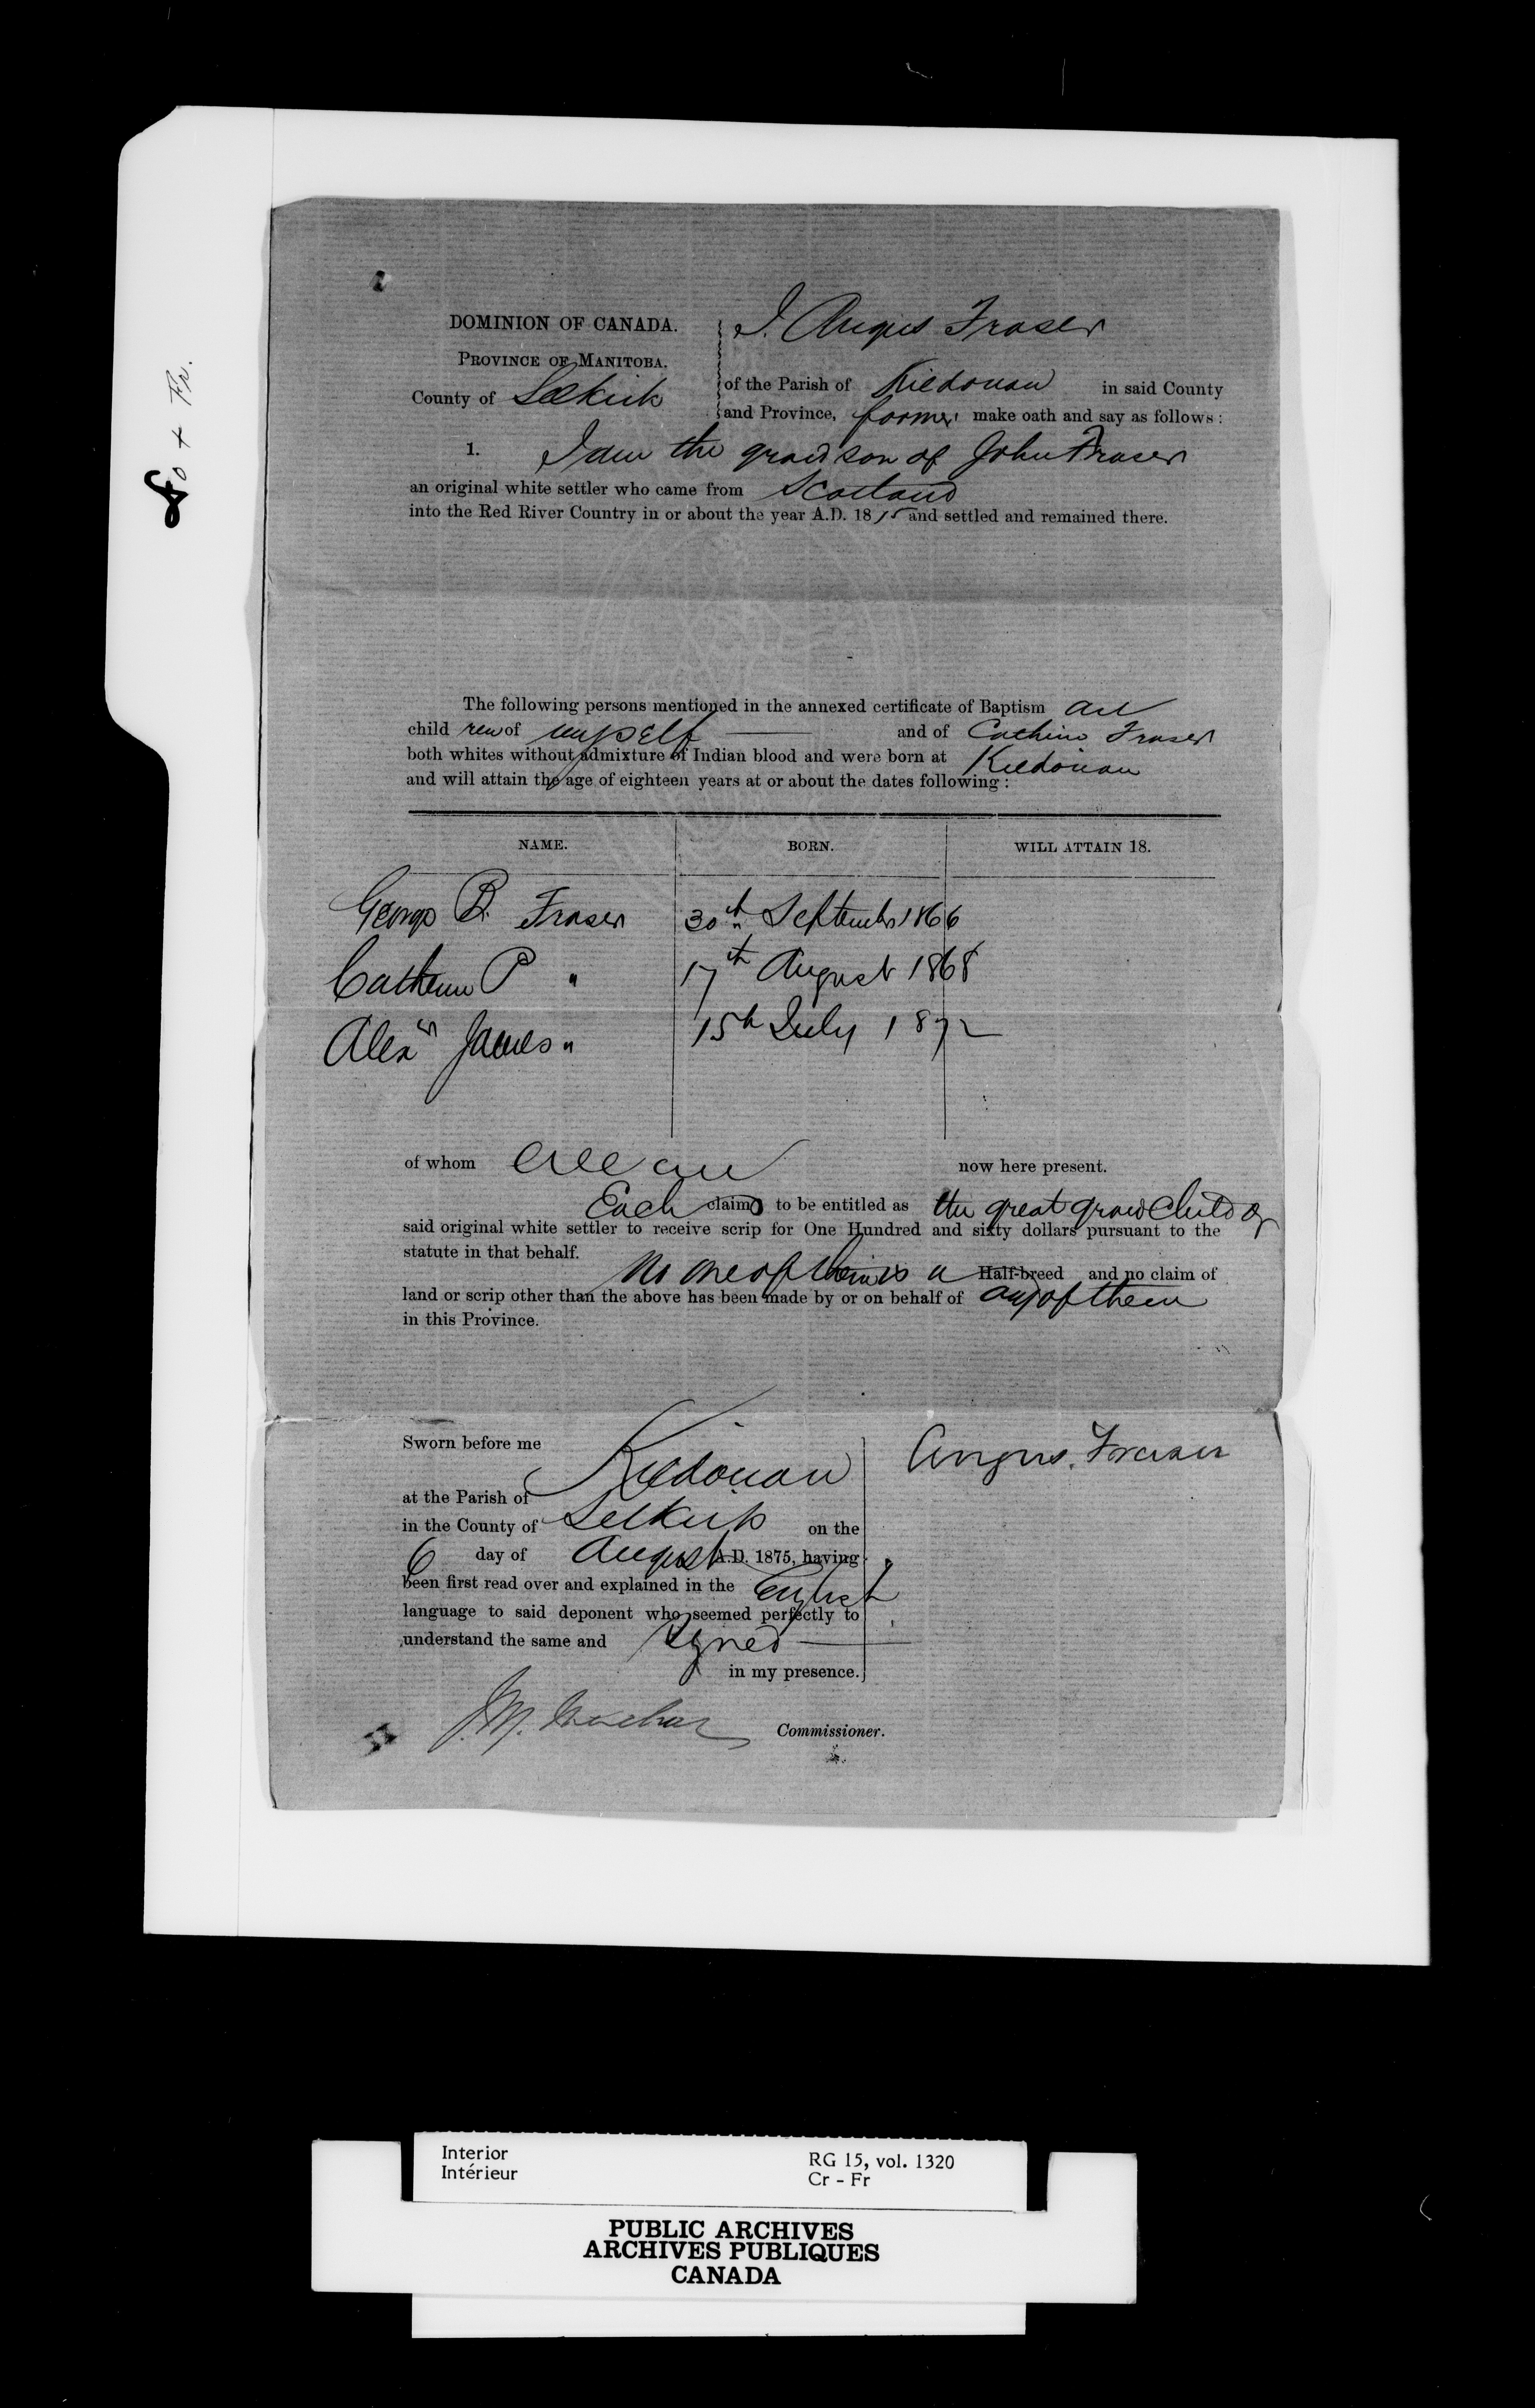 Fo + Fr.
DOMINION OF CANADA.
PROVINCE OF MANITOBA.
County of Selkirk
I. Angus Fraser
of the Parish of Kildonan in said County
and Province, farmer make oath and say as follows:
1. I am the grandson of John Fraser
an original white settler who came from Scotland
into the Red River Country in or about the year A.D. 1815 and settled and remained there.
The following persons mentioned in the annexed certificate of Baptism are
child ren of myself and of Cathrine Fraser
both whites without admixture of Indian blood and were born at Kildonan
and will attain the age of eighteen years at or about the dates following:
NAME. BORN. WILL ATTAIN 18.
George B. Fraser 30th September 1866
Catherine P " 17th August 1868
Alexr James " 15th July 1872
of whom all are now here present.
Each claims to be entitled as the great grand child of
said original white settler to receive scrip for One Hundred and sixty dollars pursuant to the
statute in that behalf.
No one of them is a Half-breed and no claim of
land or scrip other than the above has been made by or on behalf of any of them
in this Province.
Sworn before me
at the Parish of Kildonan
in the County of Selkirk on the
6 day of August A.D. 1875, having
been first read over and explained in the English
language to said deponent who seemed perfectly to
understand the same and signed
in my presence.
Angus. Fraser
J. M. Machar Commissioner.
Interior
Intérieur
RG 15, vol. 1320
Cr - Fr
PUBLIC ARCHIVES
ARCHIVES PUBLIQUES
CANADA